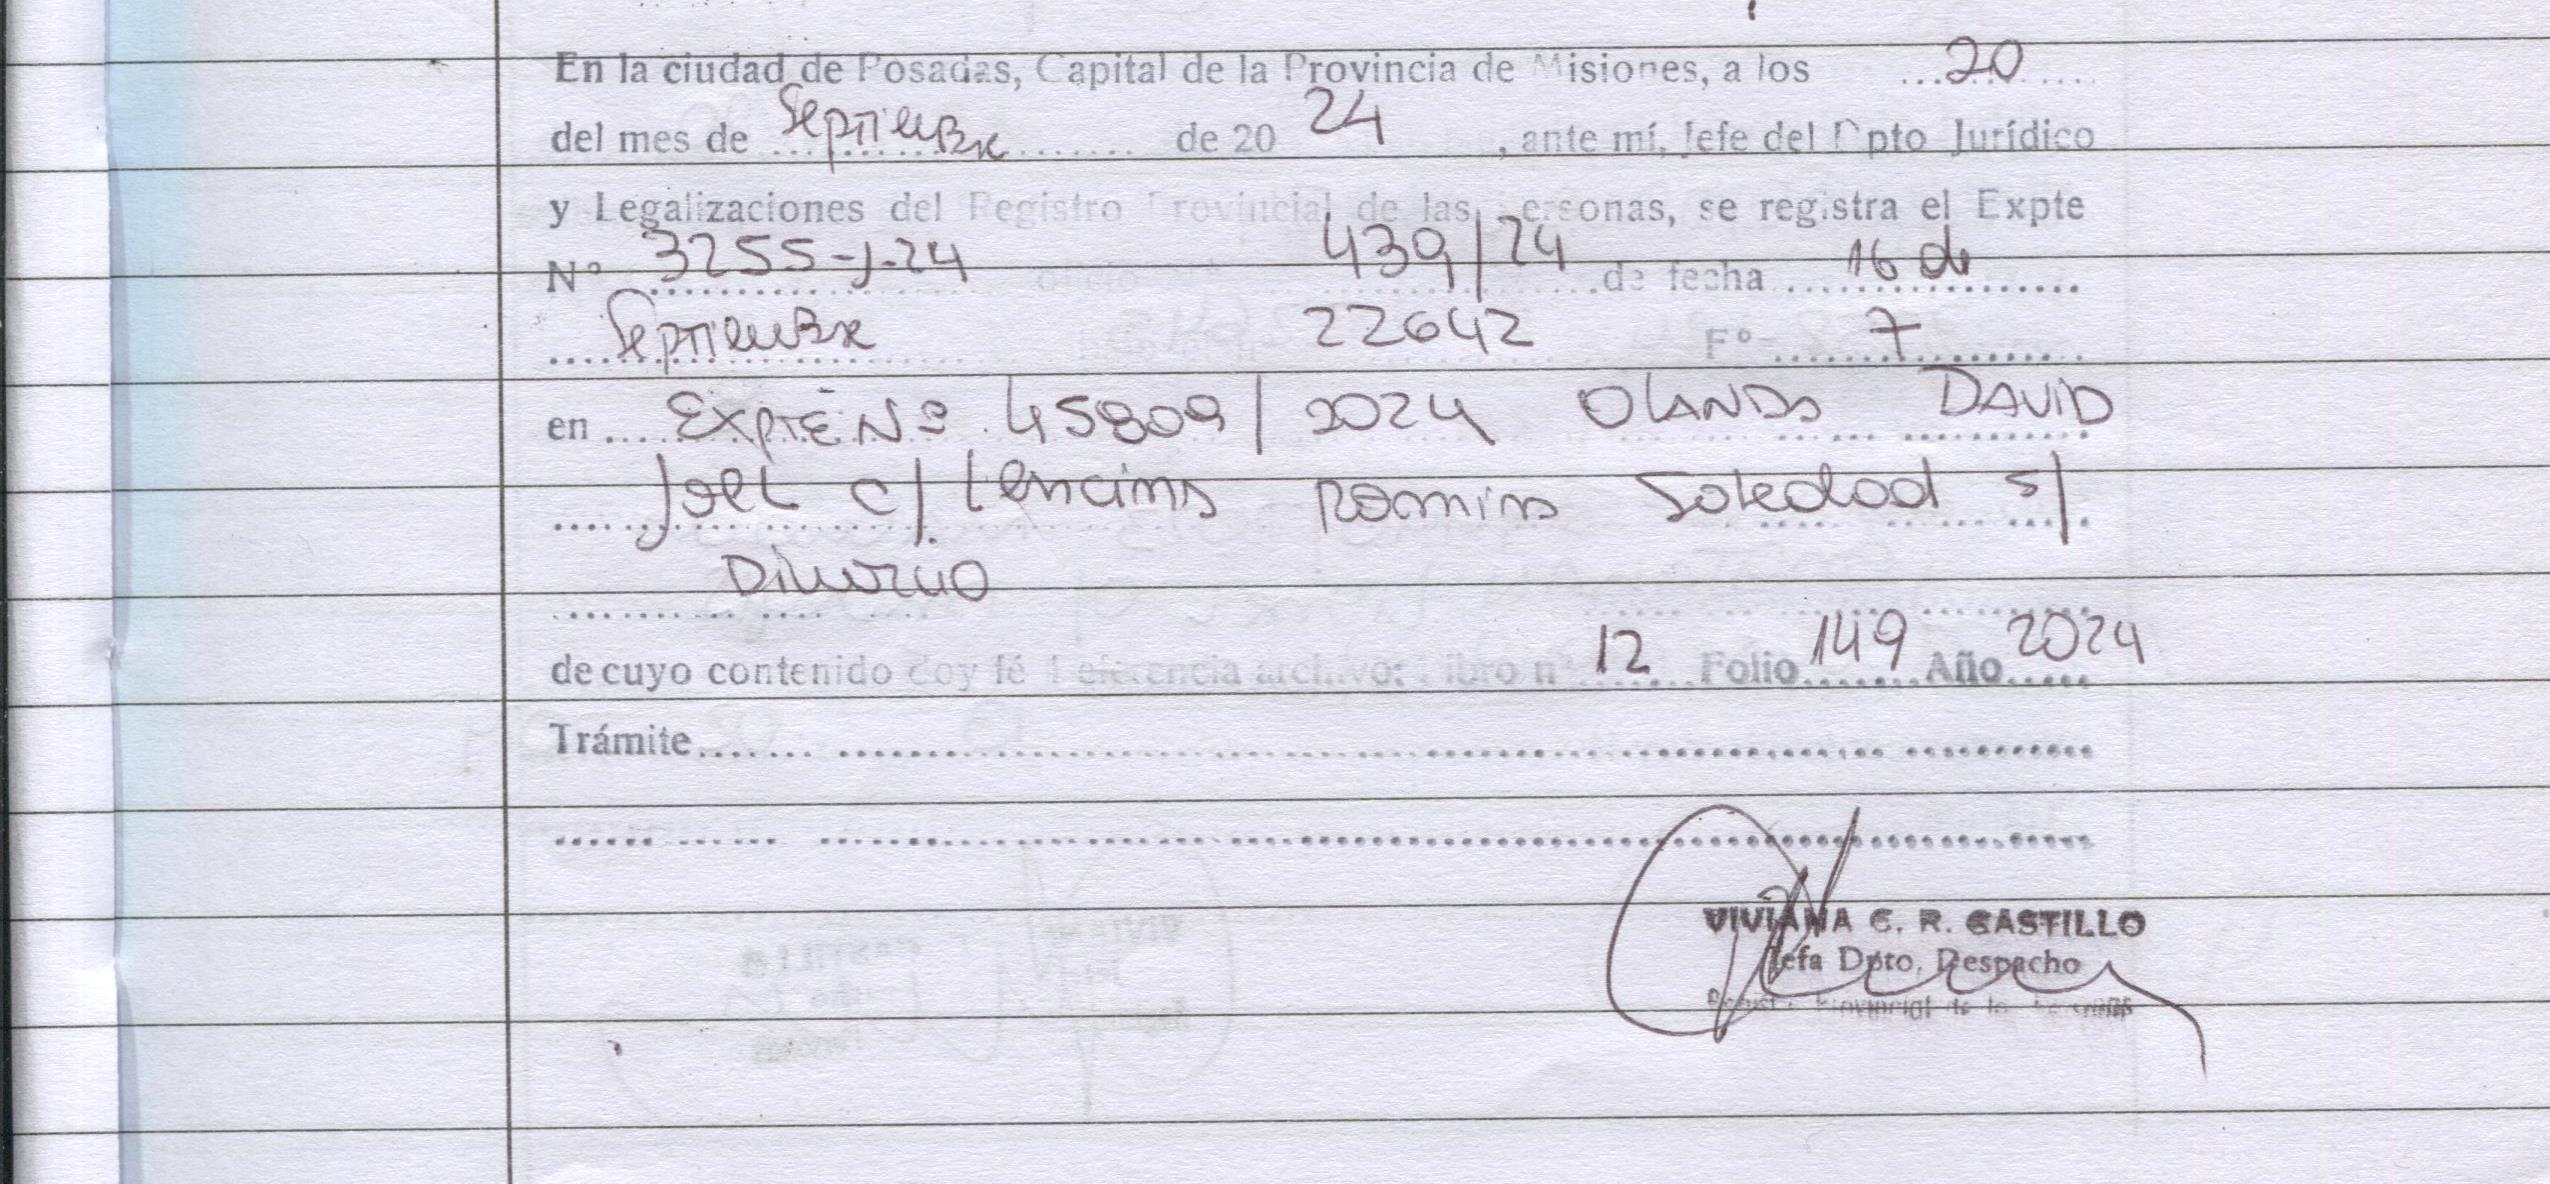 En la ciudad de Posadas, Capital de la Provincia de Misiones, a los ... 20 ....
del mes de Septiembre de 20 24 , ante mí, Jefe del Dpto Jurídico
y Legalizaciones del Registro Provincial de las Personas, se registra el Expte
Nº 3255-J-24 439/24 de fecha 16 de
Septiembre 22642 Fº 7
en Expte Nº 45809/2024 Olando DAVID
Joel c/ Lencina Romina Soledad s/
Divorcio
de cuyo contenido doy fé Referencia archivo: Libro nº 12 Folio 149 Año 2024
Trámite
VIVIANA C. R. CASTILLO
Jefa Dpto. Despacho
Registro Provincial de las Personas